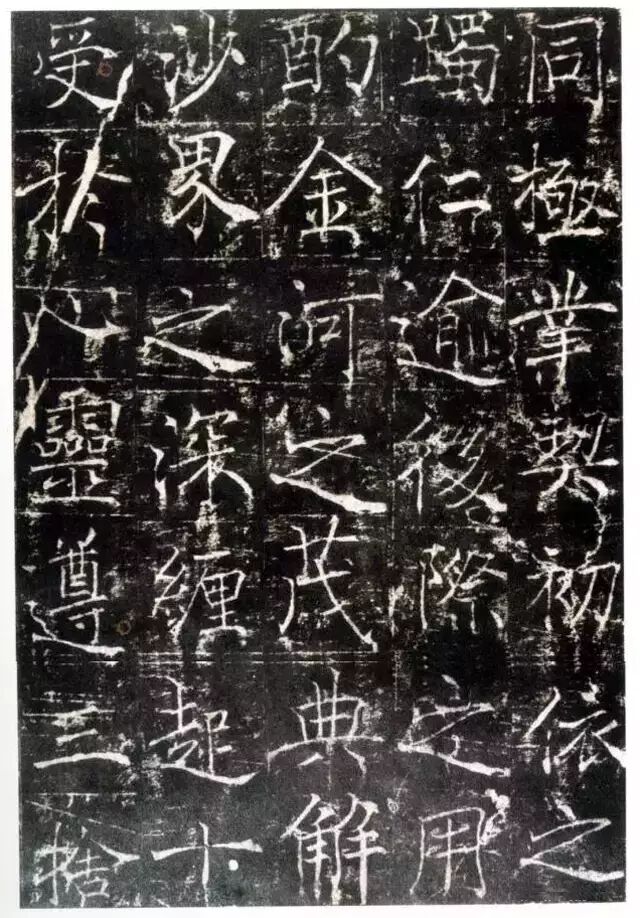 同極業契初依之
躅仁逾後際之用
酌金河之茂典解
沙界之深纏起十
受於心靈遵三捨